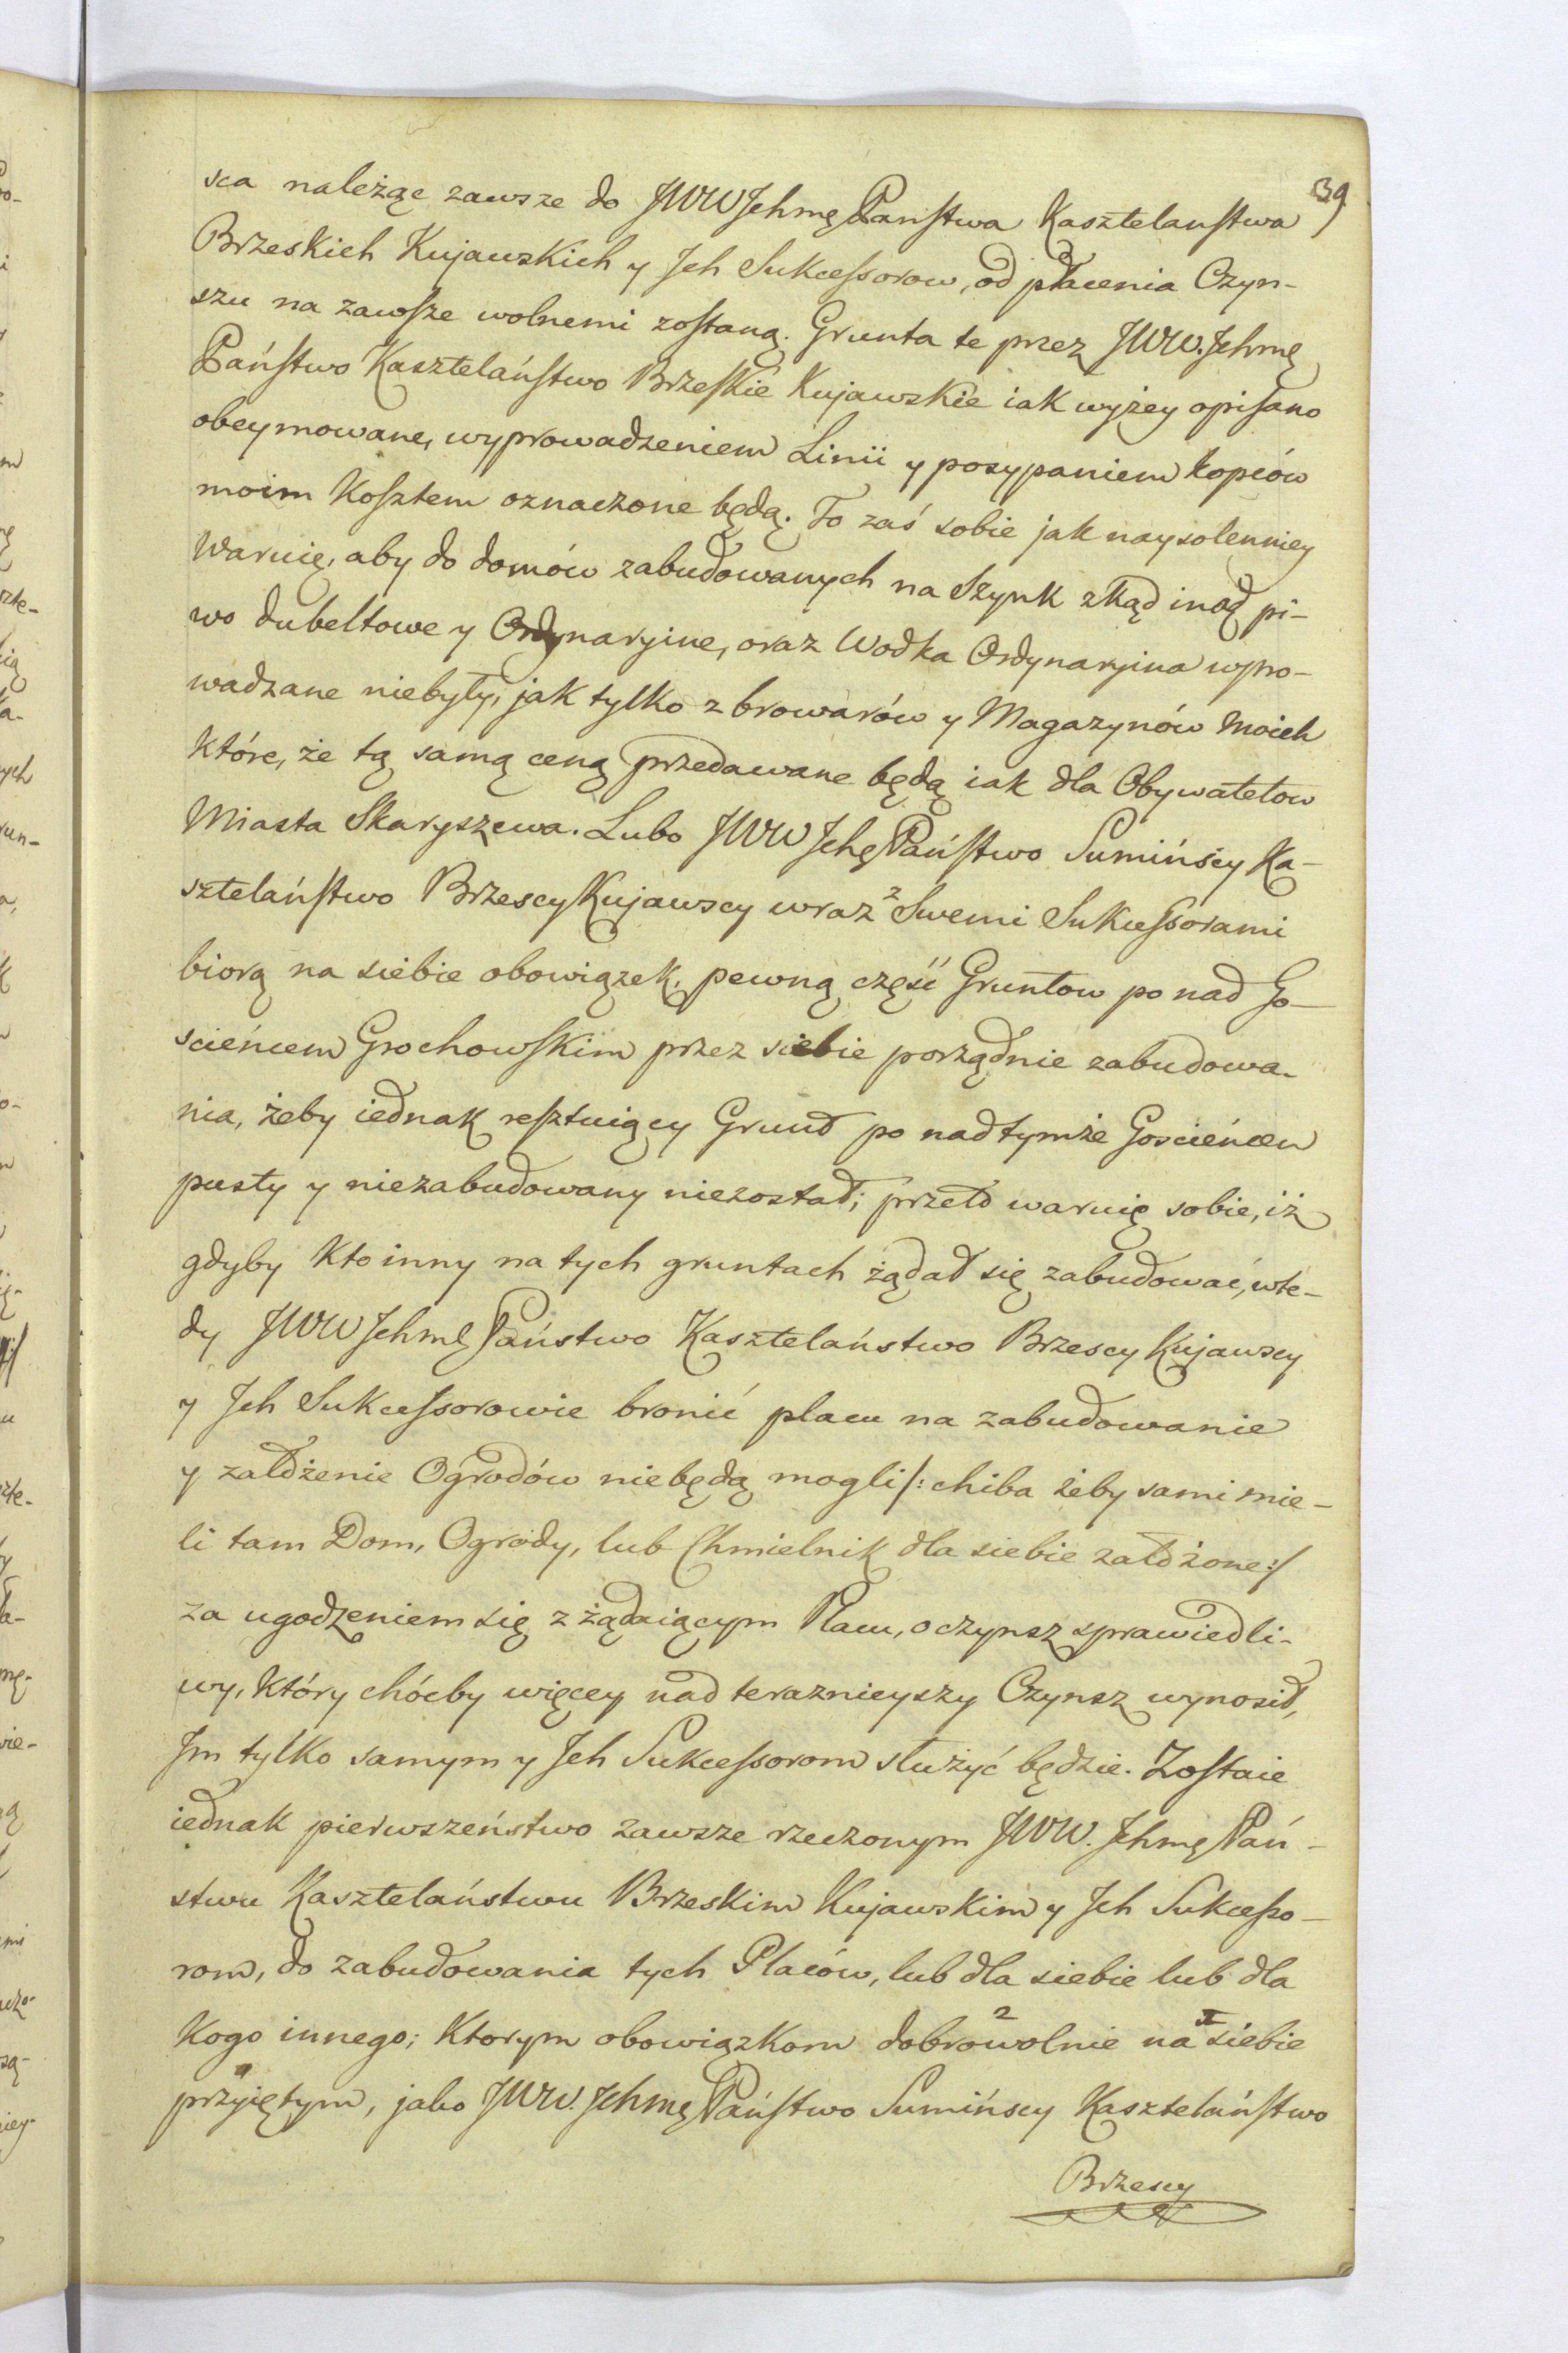 39
sca należąc zawsze do JWW Jchmę Panstwa Kasztelanstwa
Brzeskich Kujawskich y Jch Sukcessorow, od płacenia Czyn-
szu na zawsze wolnemi zostaną. Grunta te przez JWW. Jchmę
Państwo Kasztelaństwo Brzeskie Kujawskie iak wyżey opisano
obeymowane, wyprowadzeniem Linii y posypaniem kopców
moim Kosztem oznaczone będą. To zaś sobie jak naysolenniey
Waruię, aby do domów zabudowanych na Szynk zkąd inąd pi-
wo dubeltowe y Ordynaryine, oraz Wodka Ordynaryina wpro-
wadzane niebyły, jak tylko z browarów y Magazynów Moich
które, że tą samą ceną przedawane będą iak dla Obywatelow
Miasta Skaryszewa. Lubo JWW Jchę Państwo Sumińscy Ka-
sztelaństwo Brzescy Kujawscy wraz z Swemi Sukcessorami
biorą na siebie obowiązek, pewną część Gruntow po nad Go-
scieńcem Grochowskim przez siebie porządnie zabudowa-
nia, żeby iednak resztuiący Grunt po nad tymże Goscieńcem
pusty y niezabudowany niezostał; przeto waruię sobie, iż
gdyby Kto inny na tych gruntach żądał się zabudować, wte-
dy JWW Jchmę Państwo Kasztelaństwo Brzescy Kujawscy
y Jch Sukcessorowie bronić placu na zabudowanie
y założenie Ogrodów niebędą mogli /: chiba żeby sami mie-
li tam Dom, Ogrody, lub Chmielnik dla siebie założone :/
za ugodzeniem się z żądaiącym Placu, o czynsz sprawiedli-
wy, który chócby więcey nad teraznieyszy Czynsz wynosił,
Jm tylko samym y Jch Sukcessorom służyć będzie. Zostaie
iednak pierwszeństwo zawsze rzeczonym JWW. Jchmę Pań-
stwu Kasztelaństwu Brzeskim Kujawskim y Jch Sukcesso-
rom, do zabudowania tych Placów, lub dla siebie lub dla
Kogo innego; Ktorym obowiązkom dobrowolnie na siebie
przyiętym, jako JWW. Jchmę Państwo Sumińscy Kasztelaństwo
Brzescy